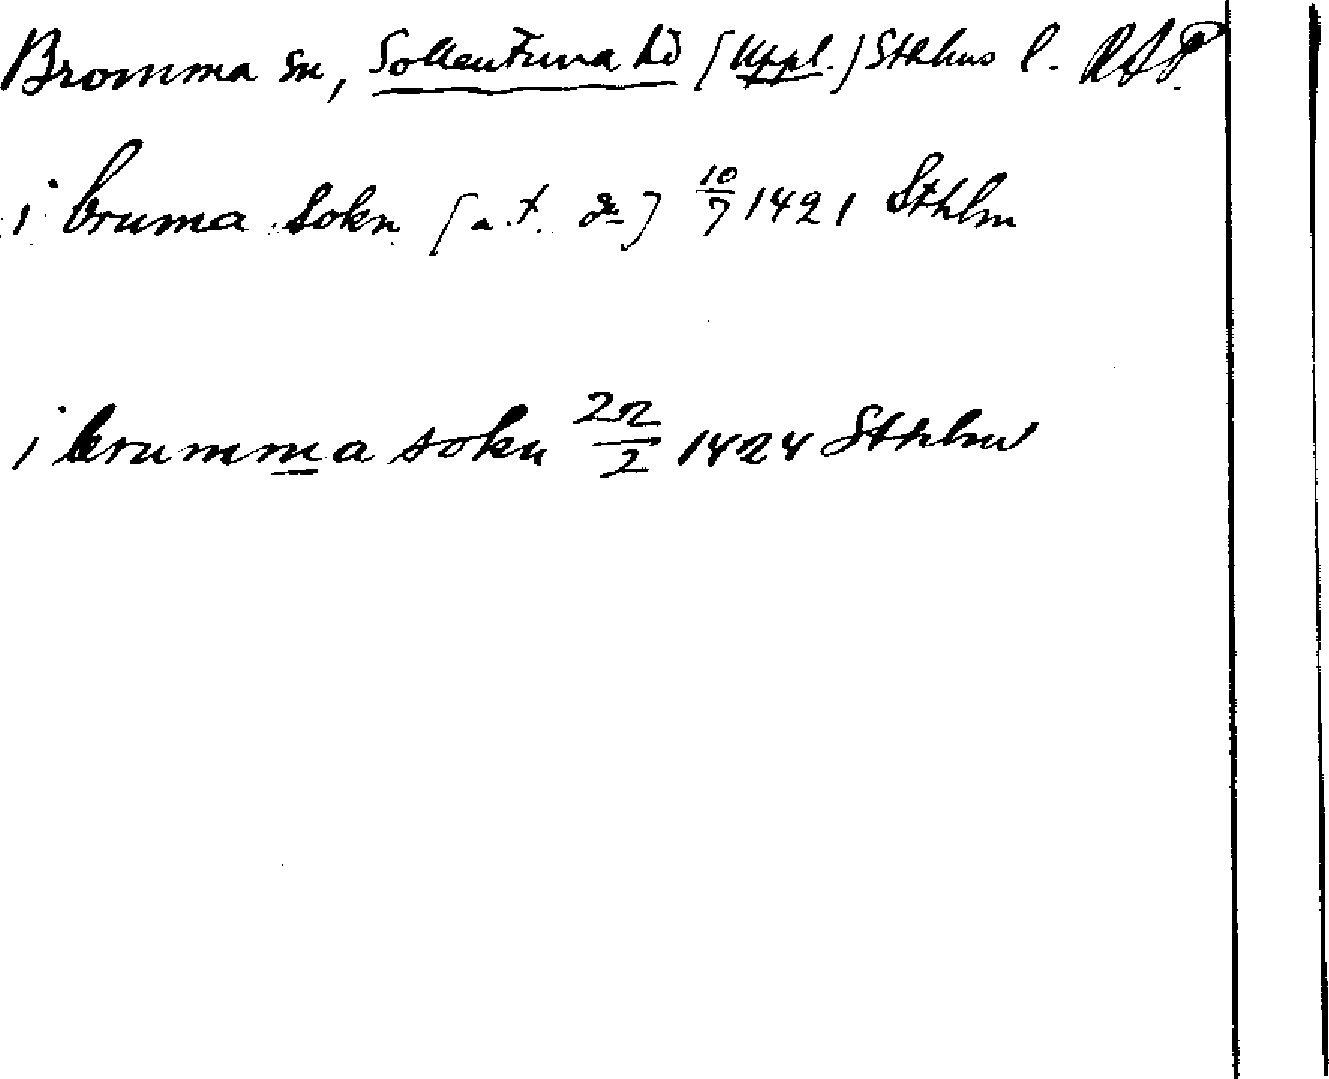 Bromma sn, Sollentuna hd (Uppl.) Sthlms l. RAP.
i bruma sokn [a.t. 2] 10/7 1421 Sthlm
i brumma sokn 22/2 1424 Sthlm